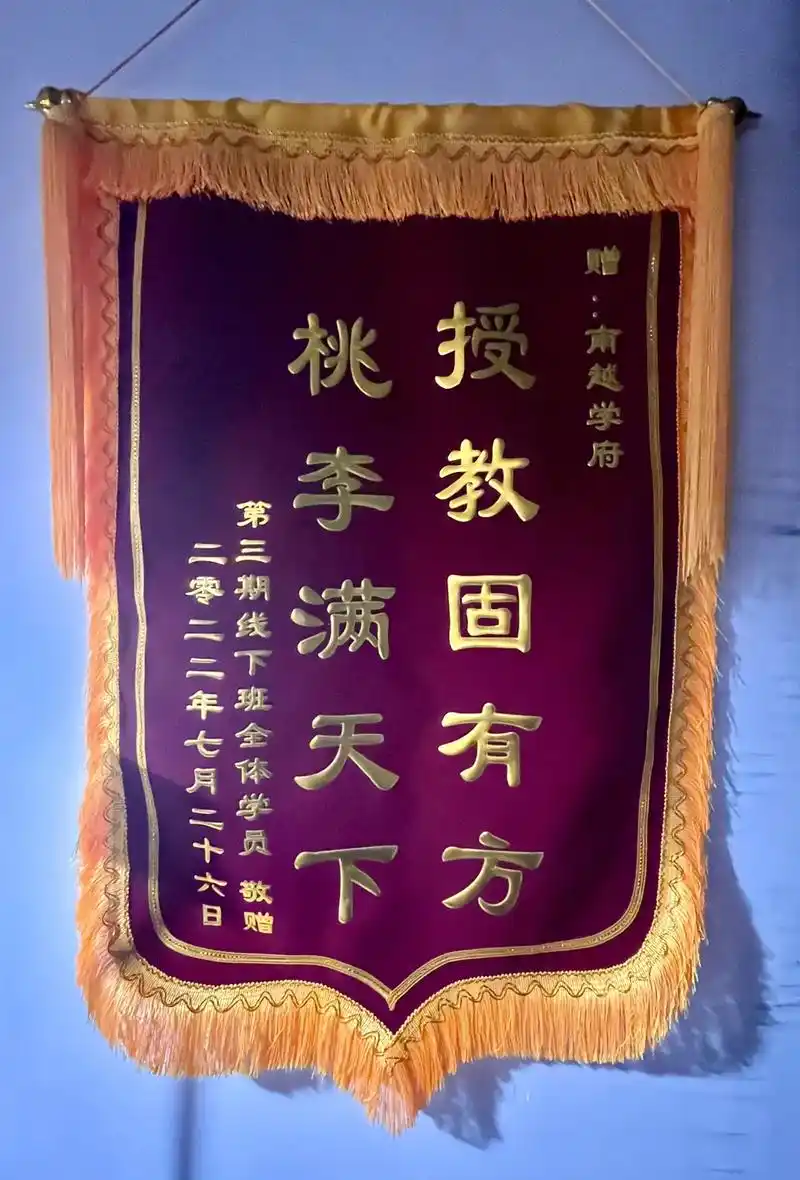 赠：南越学府
授教固有方
桃李满天下
第三期线下班全体学员 敬赠
二零二二年七月二十六日